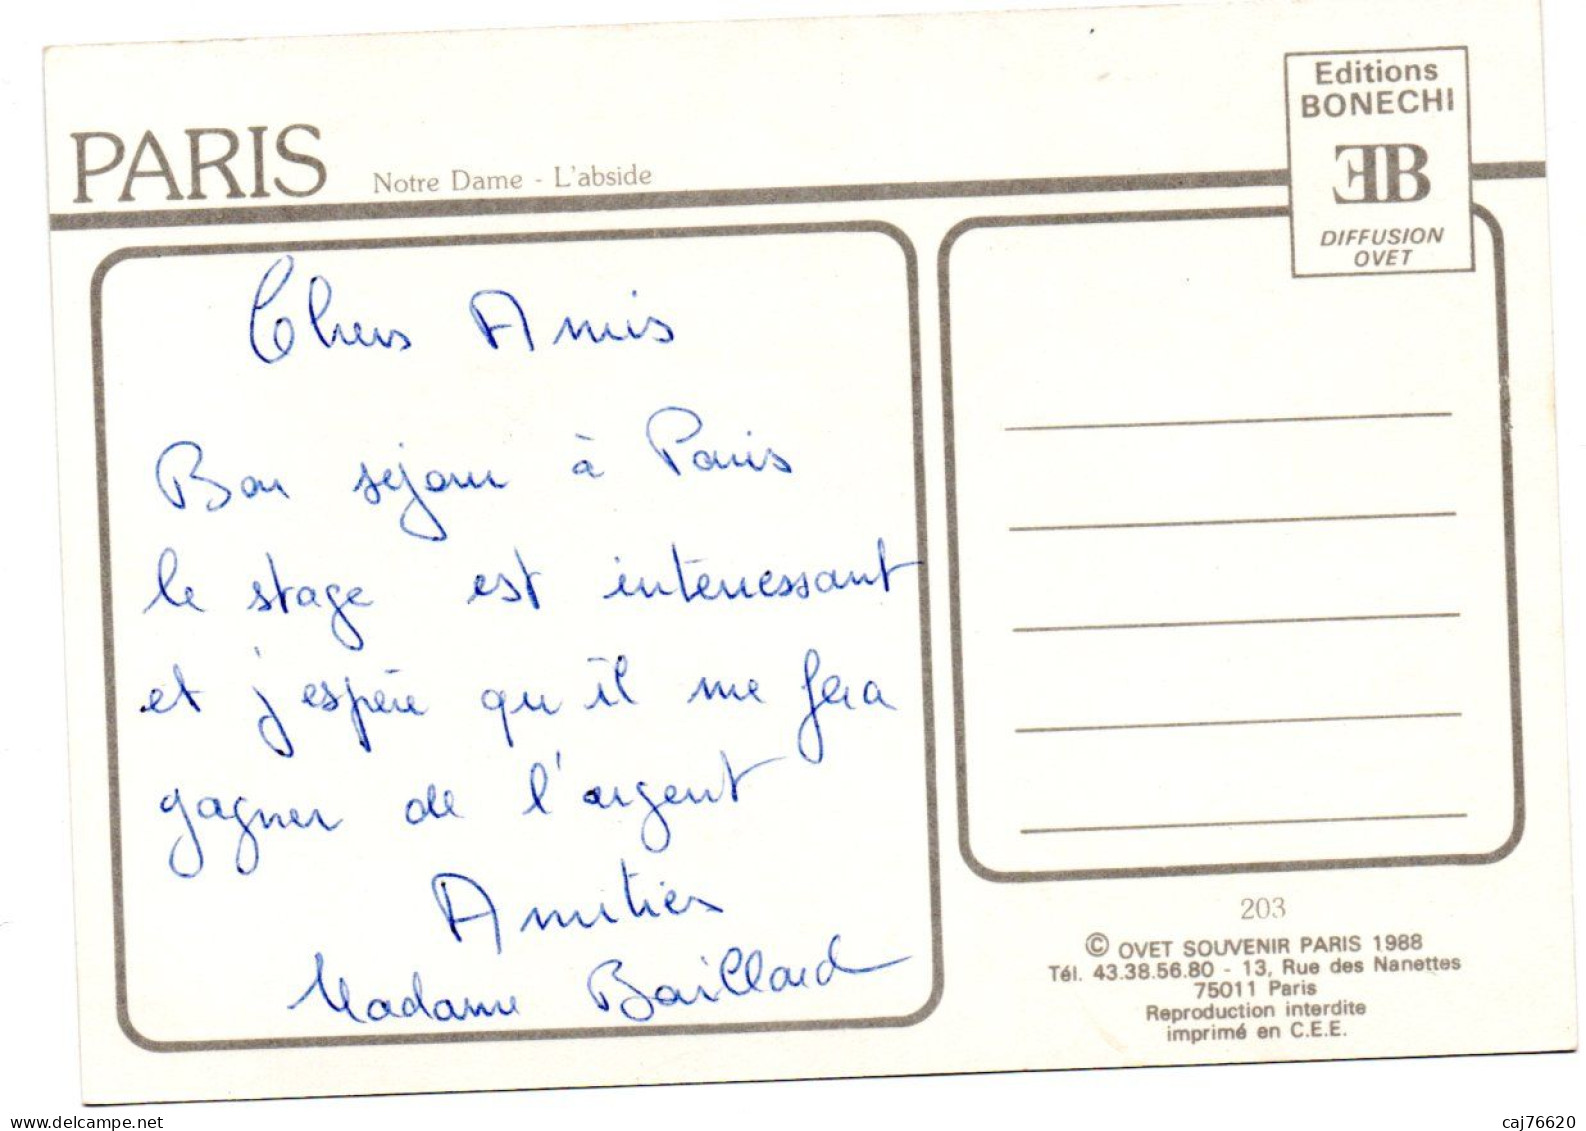 PARIS
Notre Dame - L'abside
Editions
BONECHI
EB
DIFFUSION
OVET
Chers Amis
Bon séjour à Paris
le stage est interressant
et j'espére qu'il me fera
gagner de l'argent
Amitiés
Madame Baillard
203
© OVET SOUVENIR PARIS 1988
Tél. 43.38.56.80 - 13, Rue des Nanettes
75011 Paris
Reproduction interdite
imprimé en C.E.E.
www.delcampe.net
caj76620